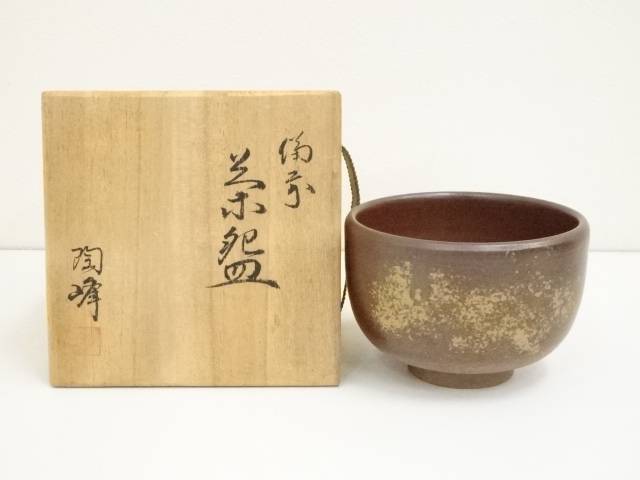 備前
茶盌
陶峰